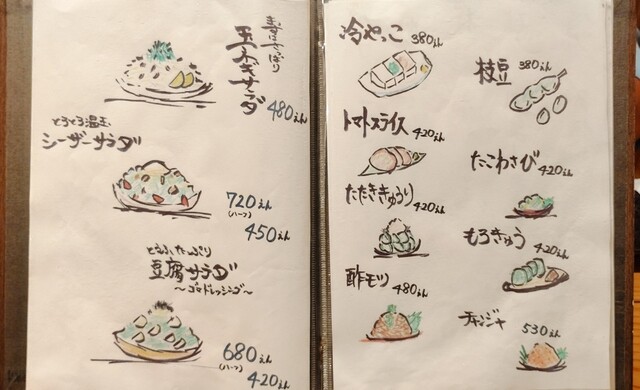 まずはさっぱり
玉ネギサラダ
480えん
とろとろ温玉
シーザーサラダ
720えん
(ハーフ)
450えん
とうふたっぷり
豆腐サラダ
〜ゴマドレッシング〜
680えん
(ハーフ)
420えん
冷やっこ 380えん
枝豆 380えん
トマトスライス
420えん
たこわさび
420えん
たたききゅうり
420えん
もろきゅう
420えん
酢モツ 480えん
チャンジャ 530えん